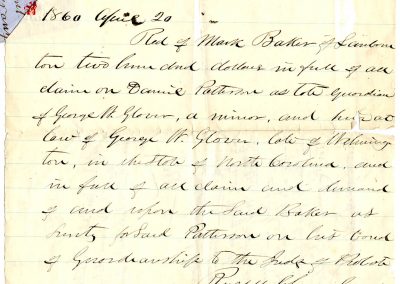 1860 April 20 "
Recd of Mark Baker of Sanborn
ton two hundred dollars in full of all
claim on Daniel Patterson as late guardian
of George W. Glover, a minor, and heir at
law of George W. Glover, late of Wilming
ton, in the State of North Carolina, and
in full of all claim and demand
of and upon the Said Baker as
Surety for Said Patterson on his bond
of Guardianship to the Judge of Probate